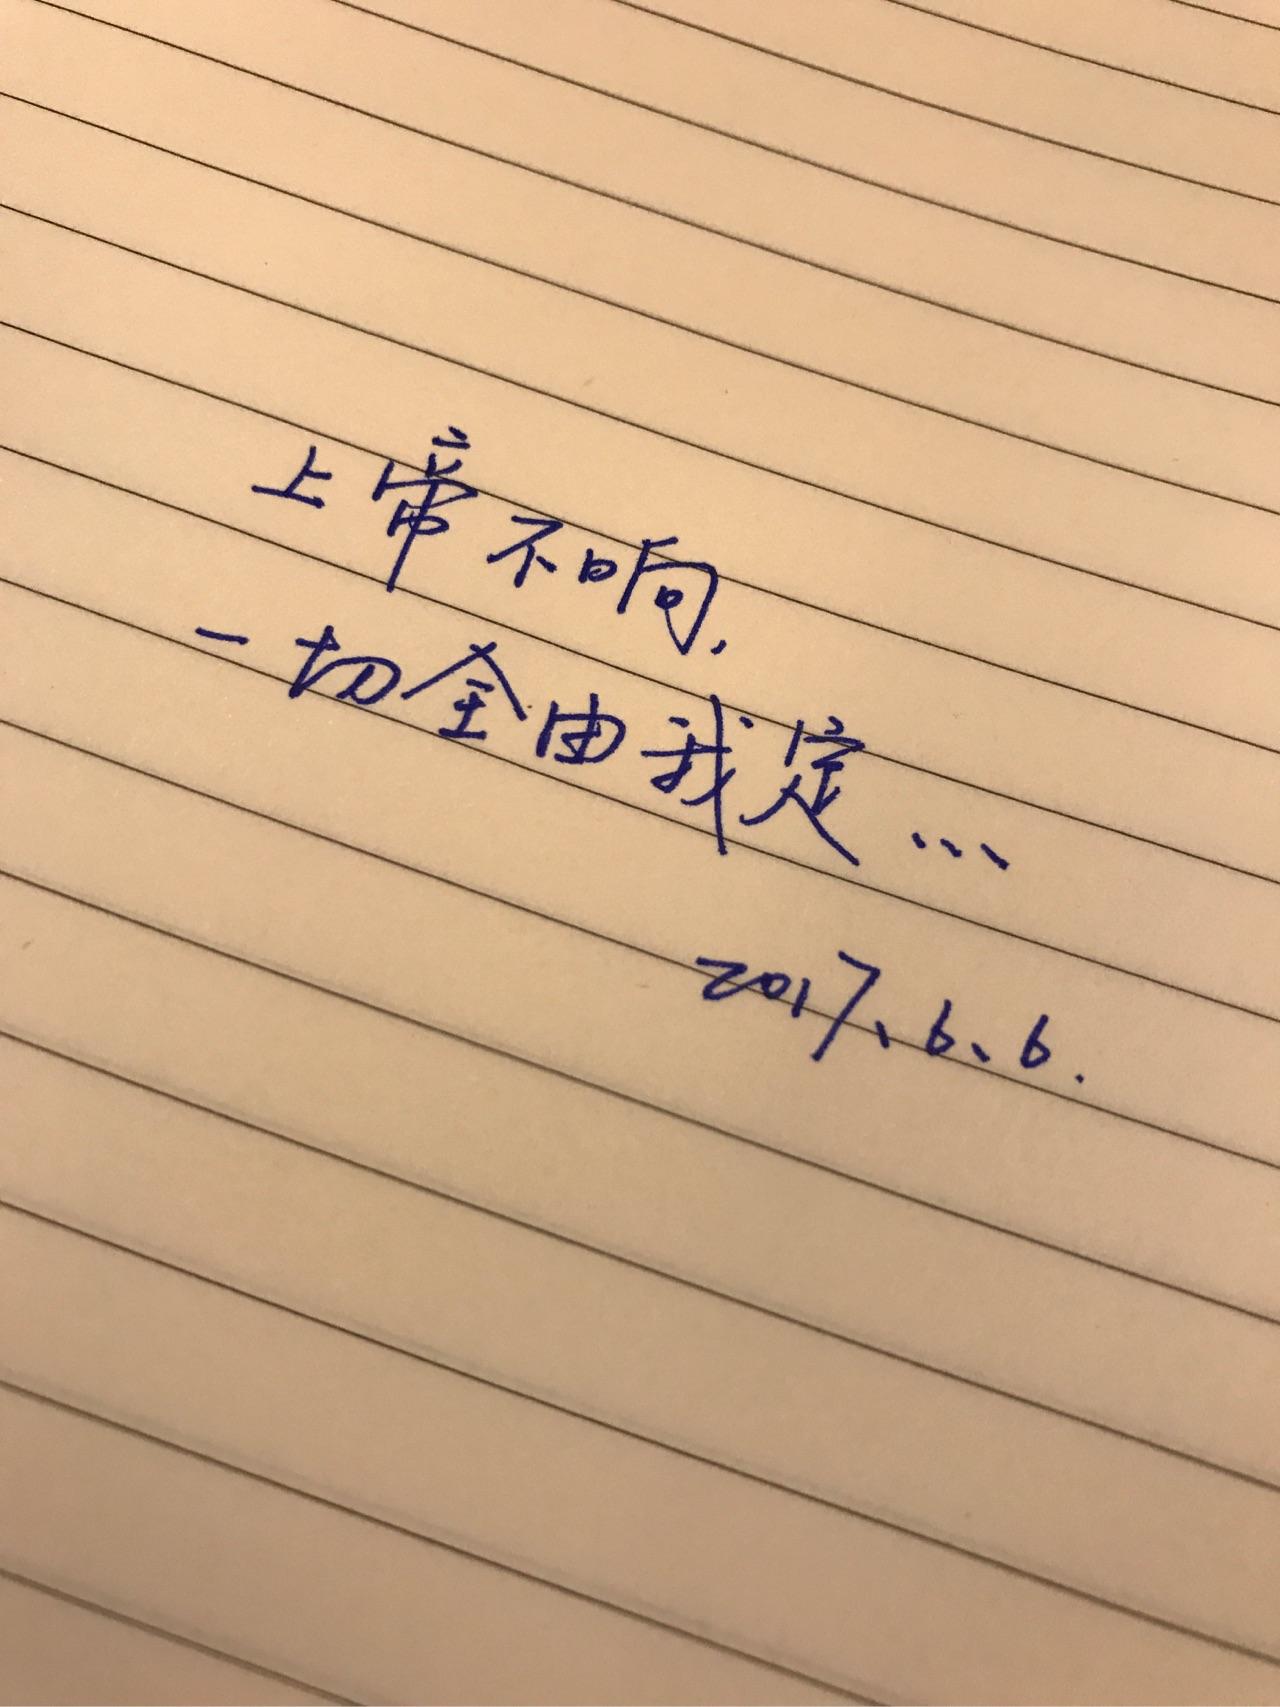 上帝不响，
一切全由我定…
2017、6、6.